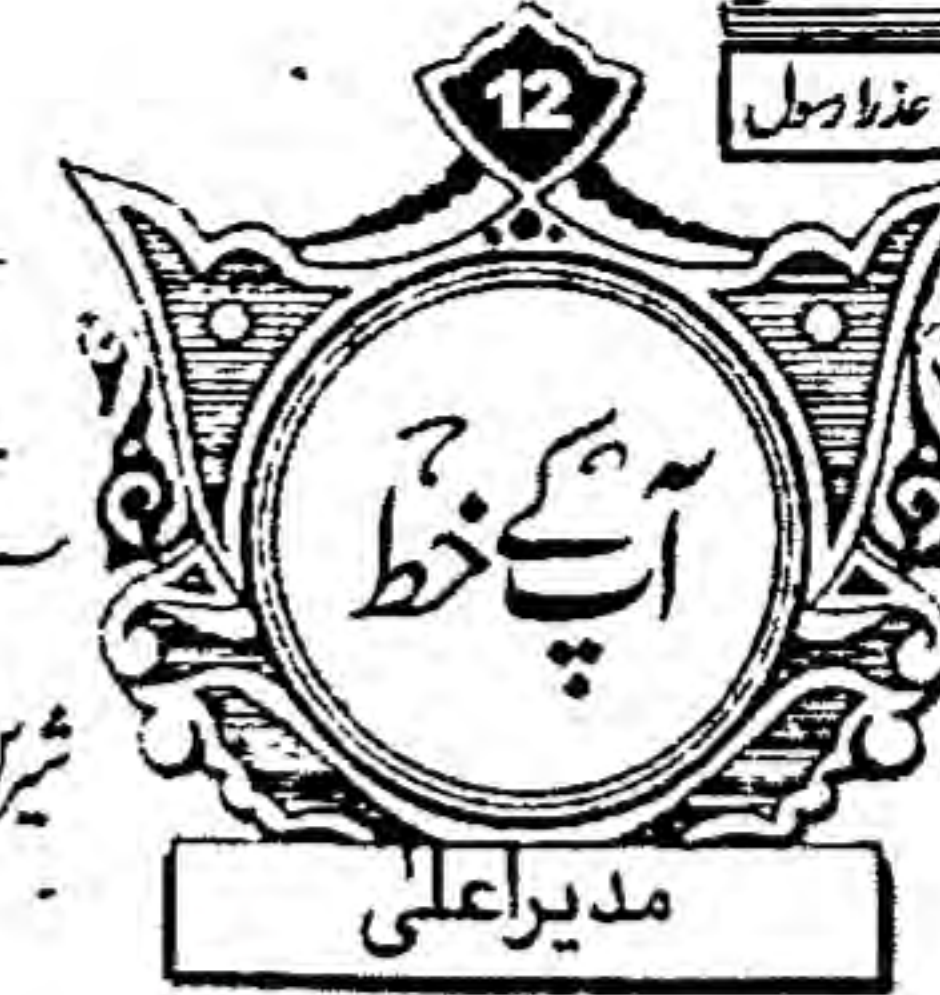 12
عذرا رسول
آپ کے خط
مدیراعلیٰ